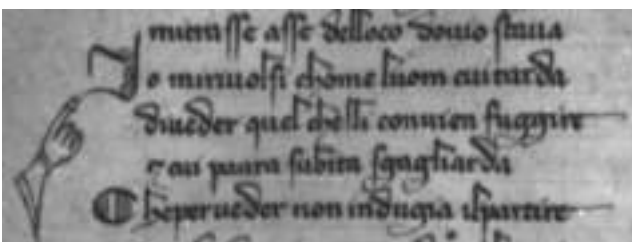 mi trasse asse delloco dovio stava
Io mi rivolsi chome luom cui tarda
di veder quel chelli convien fuggire
7 cui paura subita sgagliarda
Che per veder non indugia il partire